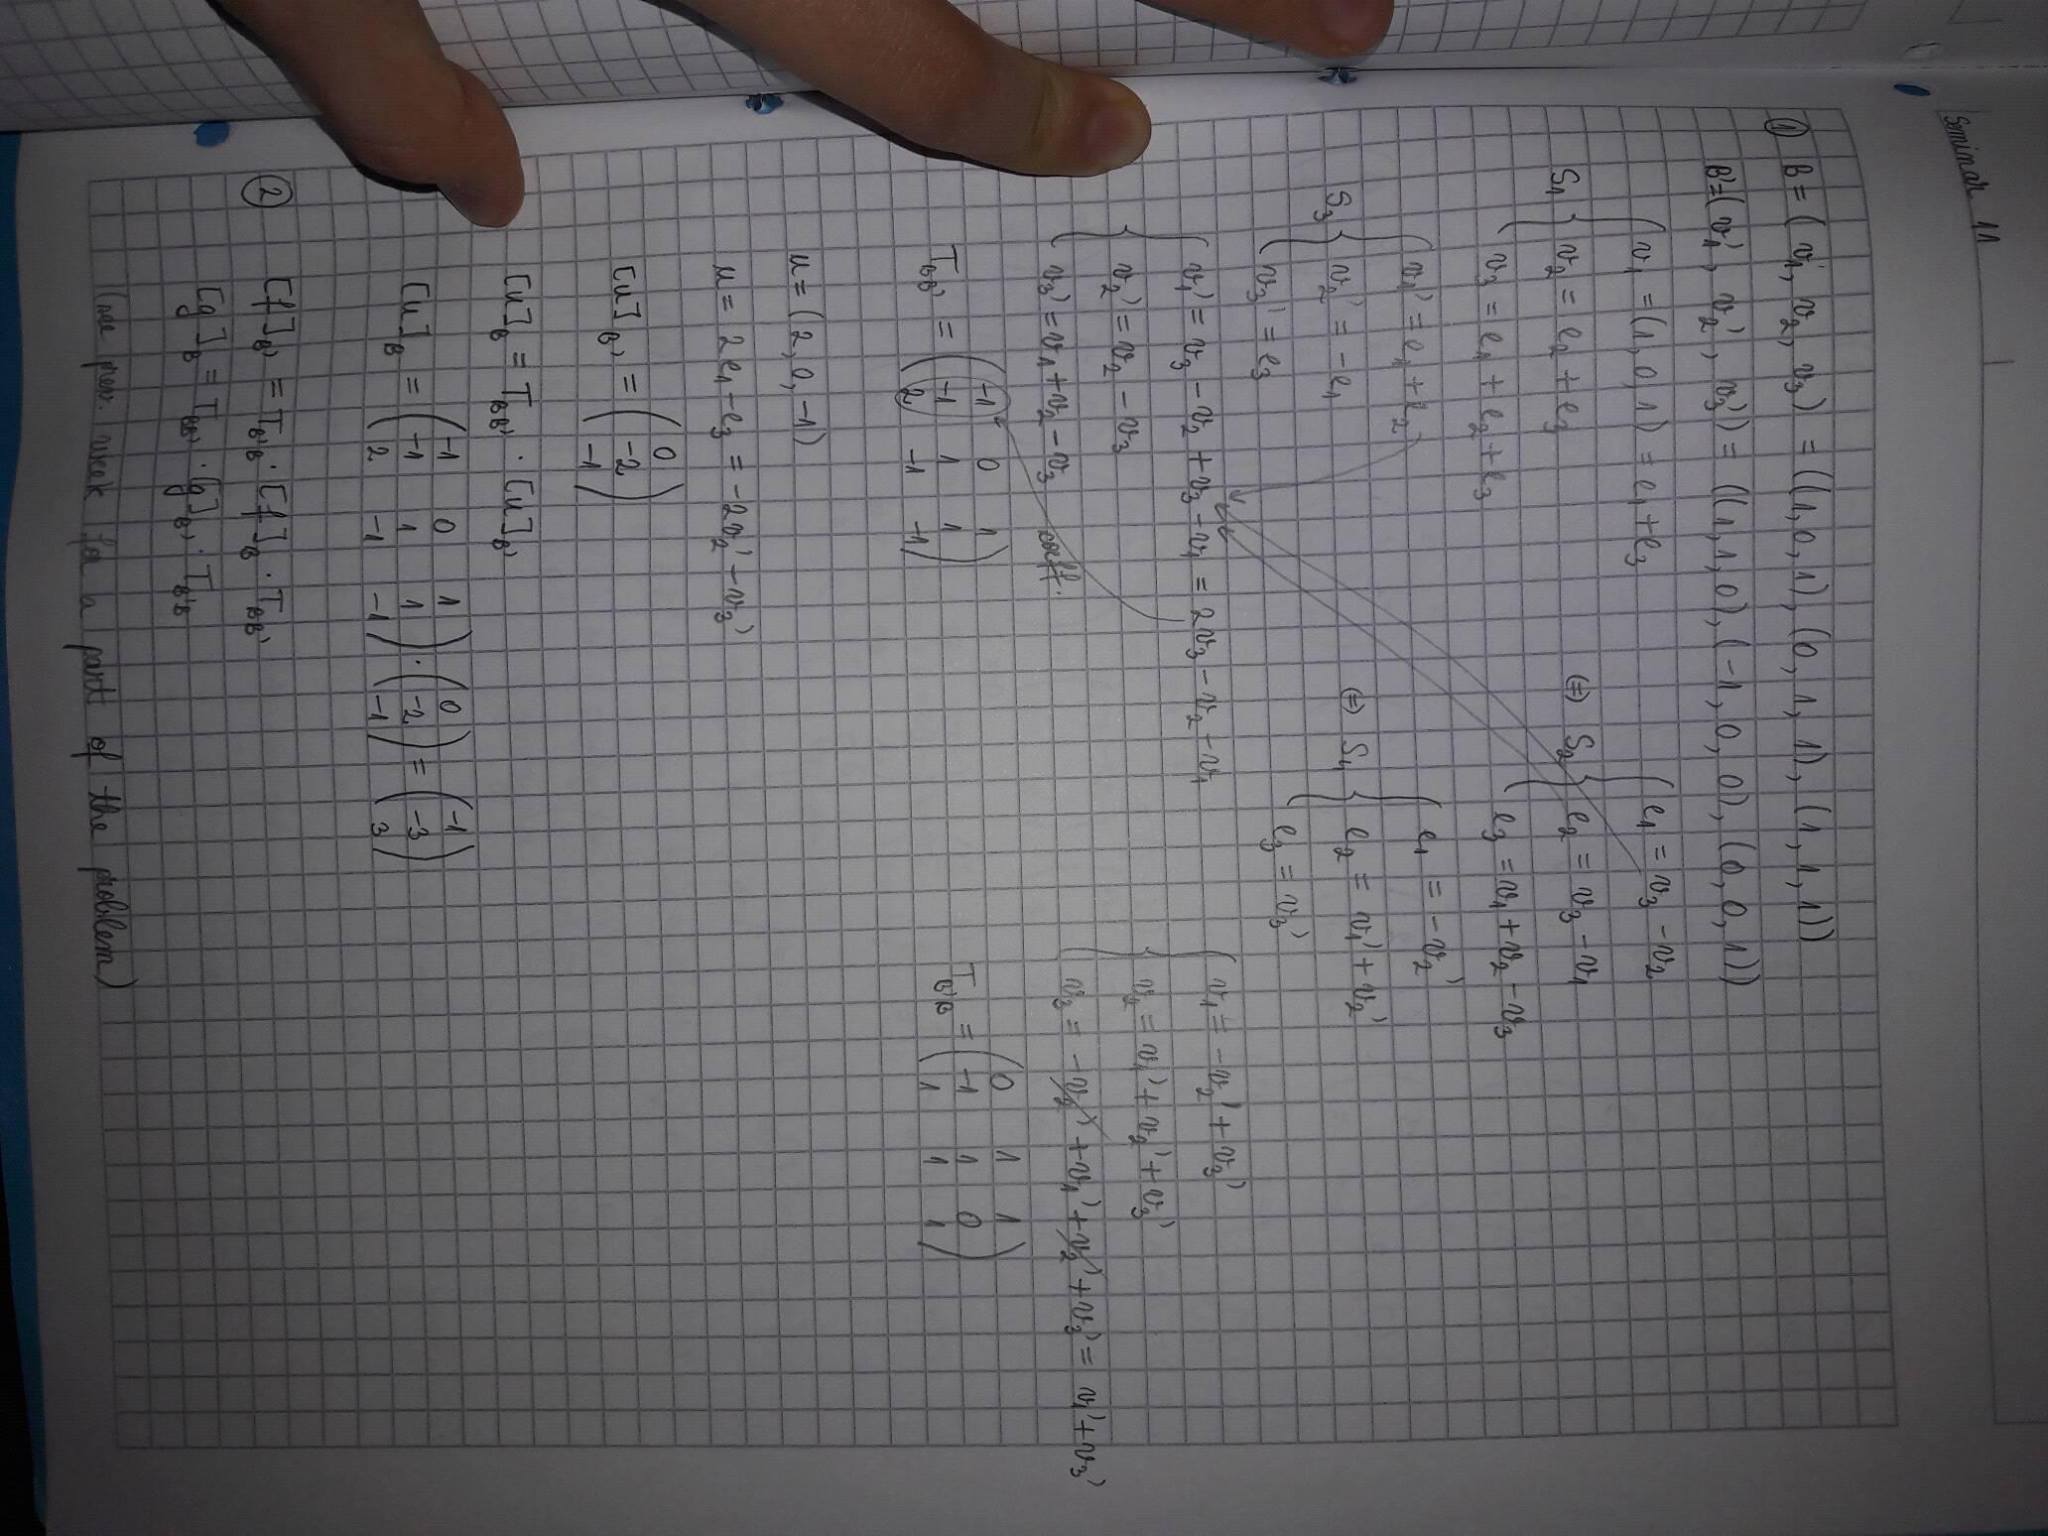 Seminar 11
① B = (v1, v2, v3) = ((1, 0, 1), (0, 1, 1), (1, 1, 1))
B' = (v1', v2', v3') = ((1, 1, 0), (-1, 0, 0), (0, 0, 1))
S1 { v1 = (1, 0, 1) = e1 + e3
v2 = e2 + e3
v3 = e1 + e2 + e3
(=) S2 { e1 = v3 - v2
e2 = v3 - v1
e3 = v1 + v2 - v3
S3 { v1' = e1 + e2
v2' = -e1
v3' = e3
(=) S4 { e1 = -v2'
e2 = v1' + v2'
e3 = v3'
{ v1' = v3 - v2 + v3 - v1 = 2v3 - v2 - v1
v2' = v2 - v3
v3' = v1 + v2 - v3
coeff.
{ v1 = -v2' + v3'
v2 = v1' + v2' + v3'
v3 = -v2' + v1' + v2' + v3' = v1' + v3'
T_BB' = ( -1 0 1
-1 1 1
2 -1 -1 )
T_B'B = ( 0 1 1
-1 1 0
1 1 1 )
u = (2, 0, -1)
u = 2e1 - e3 = -2v2' - v3'
[u]_B' = ( 0
-2
-1 )
[u]_B = T_BB' · [u]_B'
[u]_B = ( -1 0 1
-1 1 1
2 -1 -1 ) · ( 0
-2
-1 ) = ( -1
-3
3 )
② [f]_B' = T_B'B · [f]_B · T_BB'
[g]_B = T_BB' · [g]_B' · T_B'B
(see prev. week for a part of the problem)